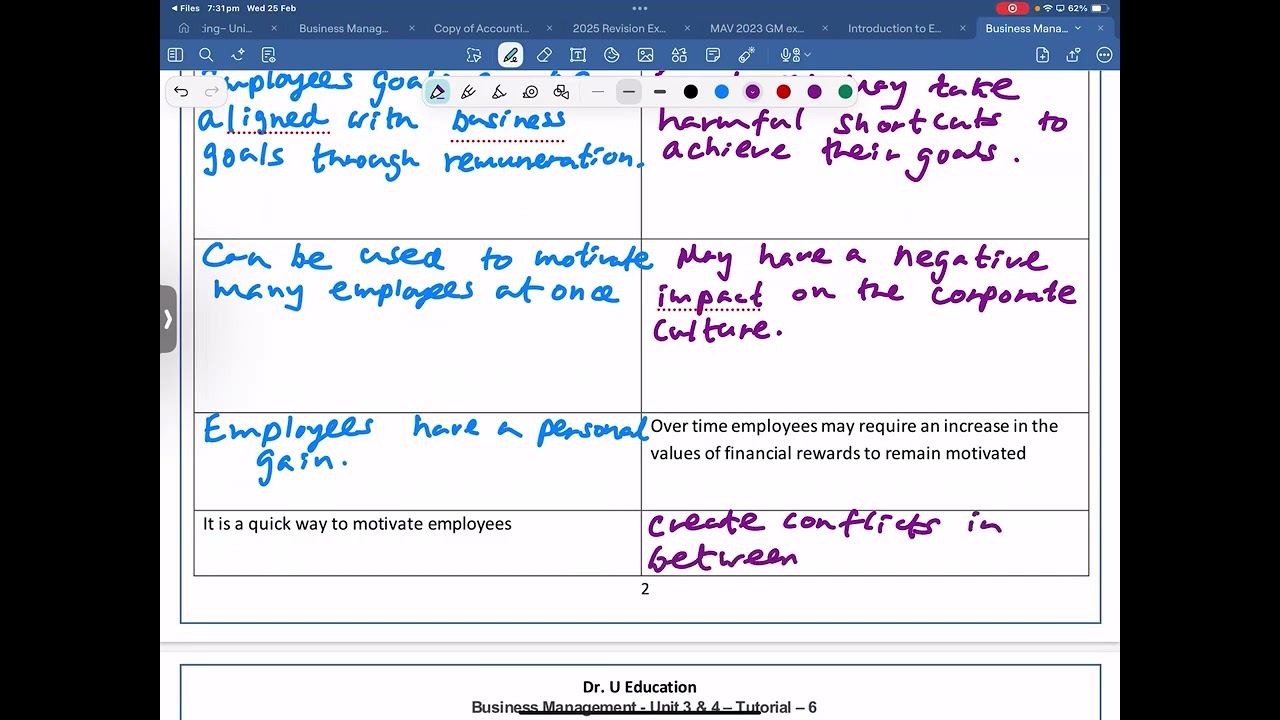 Files 7:31 pm Wed 25 Feb 62%
:ing– Uni... Business Manag... Copy of Accounti... 2025 Revision Ex... MAV 2023 GM ex... Introduction to E... Business Mana...
Employees goals
aligned with business
goals through remuneration.
may take
harmful shortcuts to
achieve their goals.
Can be used to motivate
many employees at once
May have a negative
impact on the corporate
culture.
Employees have a personal
gain.
Over time employees may require an increase in the
values of financial rewards to remain motivated
It is a quick way to motivate employees
create conflicts in
between
2
Dr. U Education
Business Management - Unit 3 & 4 – Tutorial – 6